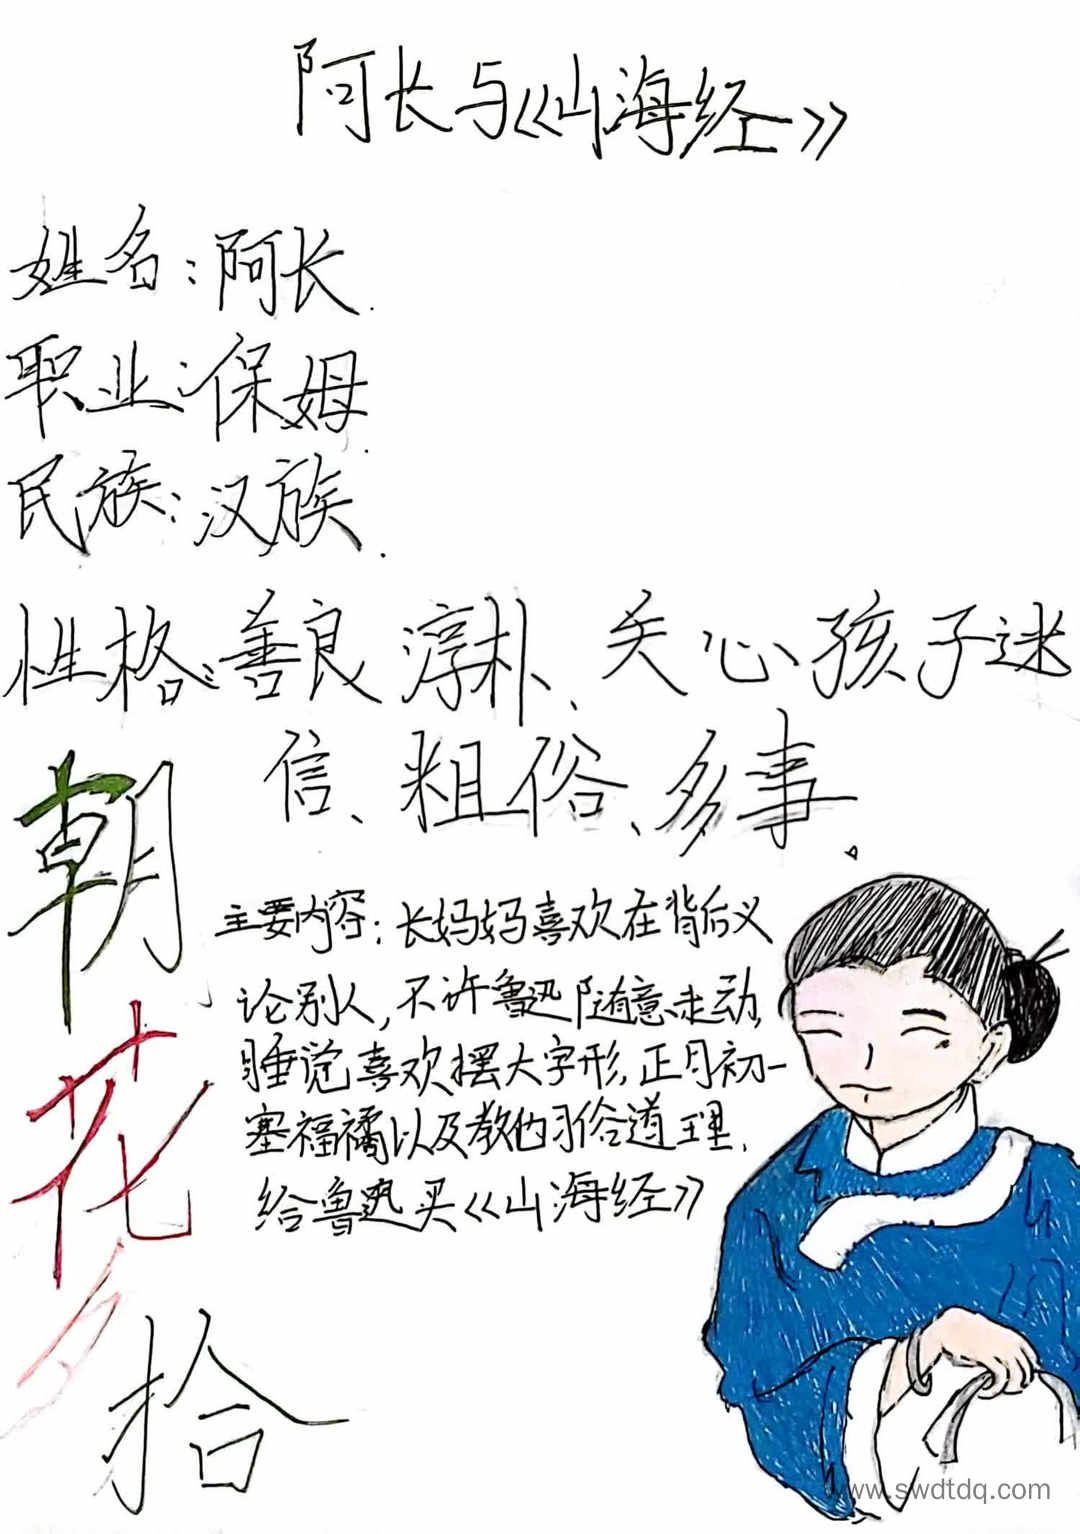 阿长与《山海经》
姓名:阿长.
职业:保姆.
民族:汉族.
性格:善良 淳朴、关心孩子迷
信、粗俗、多事。
朝花夕拾
主要内容:长妈妈喜欢在背后义
论别人,不许鲁迅随意走动,
睡觉喜欢摆大字形,正月初一
塞福橘以及教他习俗道理,
给鲁迅买《山海经》
www.swdtdq.com